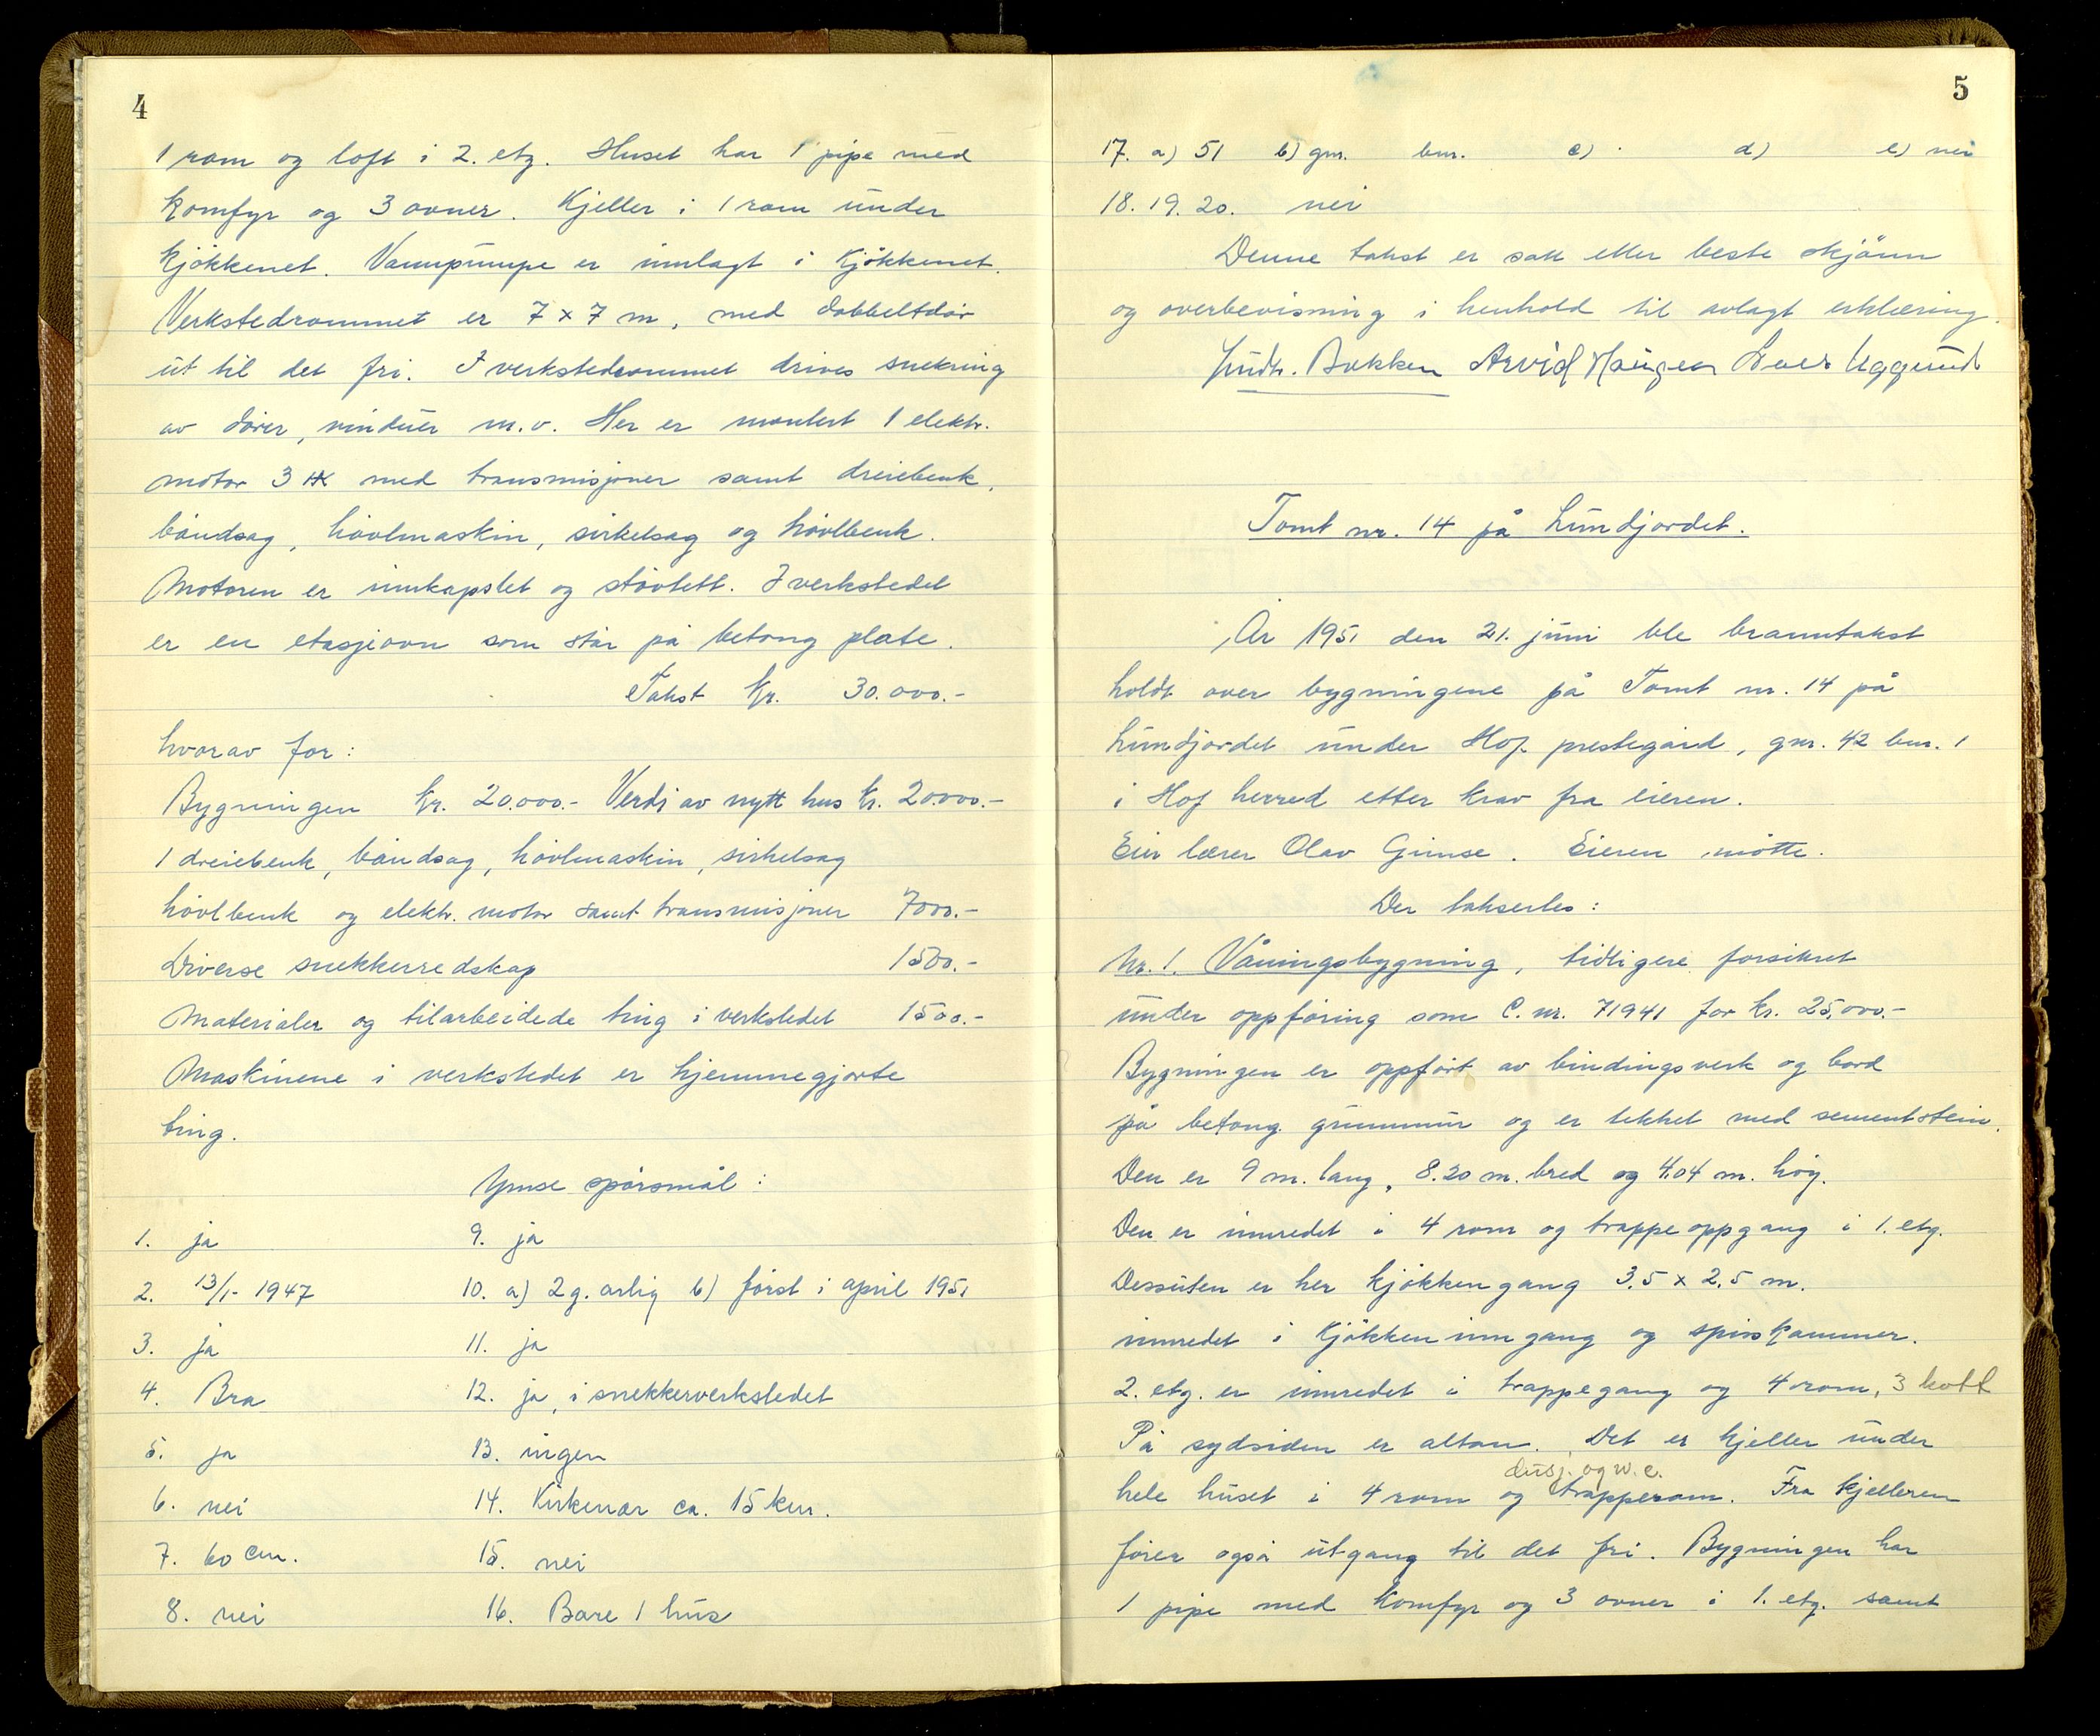 4
1 rom og loft i 2. etg. Huset har 1 pipe med
komfyr og 3 ovner. Kjeller i 1 rom under
kjökkenet. Vannpumpe er innlagt i kjökkenet.
Verkstedrommet er 7 x 7 m, med dobbeltdör
ut til det fri. I verkstedrommet drives snekring
av dörer, vinduer m.v. Her er montert 1 elektr.
motor 3 HK med transmisjoner samt dreiebenk,
båndsag, hövlmaskin, sirkelsag og hövlbenk.
Motoren er innkapslet og stövtett. I verkstedet
er en etasjeovn som står på betong plate.
Takst kr. 30.000.-
hvorav for:
Bygningen kr. 20.000.- Verdi av nytt hus kr. 20.000.-
1 dreiebenk, båndsag, hövlmaskin, sirkelsag
hövlbenk og elektr. motor samt transmisjoner 7000.-
Diverse snekkerredskap 1500.-
Materialer og tilarbeidede ting i verkstedet 1500.-
Maskinene i verkstedet er hjemmegjorte
ting.
Ymse spörsmål:
1. ja 9. ja
2. 13/1- 1947 10. a) 2 g. årlig b) först i april 1951
3. ja 11. ja
4. Bra 12. ja, i snekkerverkstedet
5. ja 13. ingen
6. nei 14. Kirkenær ca. 15 km.
7. 60 cm. 15. nei
8. nei 16. Bare 1 hus
5
17. a) 51 b) gnr. bnr. c) d) e) nei
18. 19. 20. nei
Denne takst er satt etter beste skjönn
og overbevisning i henhold til avlagt erklæring.
Gudbr. Bakken Arvid Haugen Iver Uggerud
Tomt nr. 14 på Lundjordet.
År 1951 den 21. juni ble branntakst
holdt over bygningene på Tomt nr. 14 på
Lundjordet under Hof prestegård, gnr. 42 bnr. 1
i Hof herred etter krav fra eieren.
Eier lærer Olav Grimse. Eieren mötte.
Der takserles:
Nr. 1. Våningsbygning, tidligere forsikret
under oppföring som C. nr. 71941 for kr. 25,000.-
Bygningen er oppfört av bindingsverk og bord
på betong grunnmur og er tekket med sementstein.
Den er 9 m. lang, 8.20 m. bred og 4.04 m. höy.
Den er innredet i 4 rom og trappeoppgang i 1. etg.
Dessuten er her kjökkengang 3.5 x 2.5 m.
innredet i kjökkeninngang og spiskammer.
2. etg. er innredet i trappegang og 4 rom, 3 kott
På sydsiden er altan. Det er kjeller under
dusj. og w.c.
hele huset i 4 rom og trapperom. Fra kjelleren
förer også utgang til det fri. Bygningen har
1 pipe med komfyr og 3 ovner i 1. etg. samt